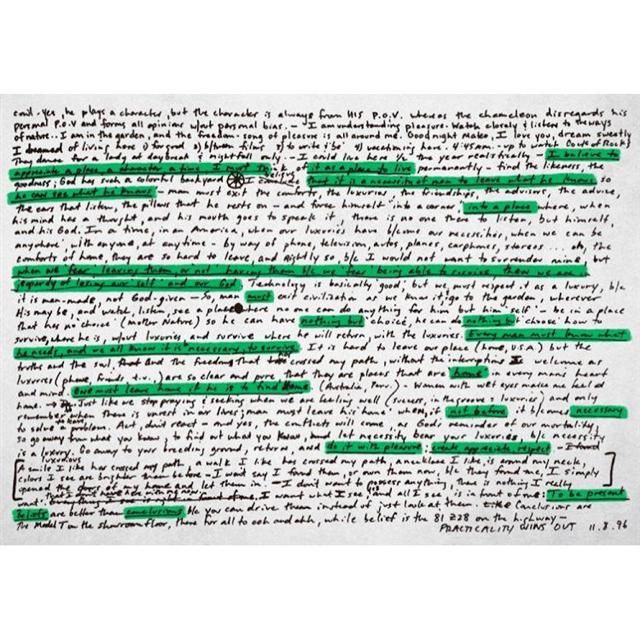 evil - yes, he plays a character, but the character is always from HIS P.O.V. whereas the chameleon disregards his
personal P.O.V and forms all opinions w/out personal bias. — I am understanding pleasure. Watch closely & listen to the ways
of nature.. I am in the garden, and the freedom-song of pleasure is all around me. Goodnight Make, I love you, dream sweetly
I dreamed of living here 1) for good 2) b/tween films 3) to write & be 4) vacationing here. 4:45am - up to watch Cocks of Rock)
They dance for a lady at daybreak & nightfall only. — I could live here ½ the year realistically — I believe to
appreciate a place, a character a time, I must think of it as a place to live permanently - find the likeness, the
goodness; God has such a colorful backyard I believe that it is a necessity of man to leave what he knows so
he can see what he knows - man must exit the comforts, the luxuries, the friendships, the advisors, the advice,
the ear that listens, the pillars that he rests on - and force himself into a corner into a place where, when
his mind has a thought, and his mouth goes to speak it, there is no one there to listen, but himself,
and his God. In a time, in an America, when our luxuries have b/come our necessities, when we can be
anywhere, with anyone, at any time - by way of phone, television, autos, planes, carphones, stereos ... oh, the
comforts of home, they are so hard to leave, and rightly so, b/c I would not want to surrender mine, but
when we fear leaving them, or not having them b/c we 'fear' being able to survive, then we are
jeopardy of losing our 'salt' and our God. Technology is basically good; but we must respect it as a luxury, b/c
it is man-made, not God-given - So, man must exit civilization as we know it; go to the garden, wherever
His may be, and watch, listen, see a place where no one can do anything for him but him self - be in a place
that has no choice (mother Nature) so he can have nothing but choice, he can do nothing but choose how to
survive, where he is, w/out luxuries, and survive when he will return with the luxuries. Every man must know what
he needs, and we all know it is necessary to survive. It is hard to leave our place (home, U.S.A) but the
truths and the soul, that God and the freedom that cross my path, without the interruptions I welcome as
luxuries (phone, friends, t.v.) are so clear and pure, that they are places that are home in every man's heart
and mind. One must leave home if he is to find home. (Australia, Peru). - Women with wet eyes make me feel at
home. - Just like we stop praying & seeking when we are feeling well (success, in the groove & luxuries) and only
remember when there is unrest in our lives; man must leave his home when it is not before it b/comes necessary
to solve a problem. Act, don't react - and yes, the conflicts will come, as God's reminder of our mortality,
so go away from what you know, to find out what you know, bear in luxuries, b/c necessity
is a luxury. Go away to your breeding ground, return, and do it with pleasure: create, appreciate, respect
a smile I like has crossed my path, a walk I like has crossed my path, a necklace I like is around my neck,
colors I see are brighter than before - I won't say I found them, or own them now, b/c they found me, I simply
opened the doors of my home and let them in. — I don't want to possess anything, there is nothing I really
want. I want what I see, and all I see is in front of me: To be present
Beliefs are better than conclusions b/c you can drive them instead of just look at them. Conclusions are
the Model T on the showroom floor, there for all to ooh and ahh, while belief is the 81 Z28 on the highway —
PRACTICALITY WINS OUT 11.8.96